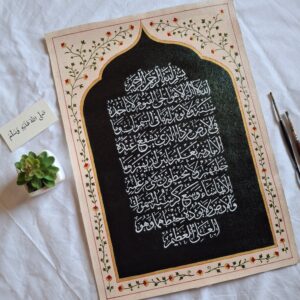 بسم الله الرحمن الرحيم
الله لا إله إلا هو الحي القيوم لا تأخذه
سنة ولا نوم له ما في السموات وما
في الأرض من ذا الذي يشفع عنده
إلا بإذنه يعلم ما بين أيديهم وما
خلفهم ولا يحيطون بشيء من علمه
إلا بما شاء وسع كرسيه السموات
والأرض ولا يئوده حفظهما وهو
العلي العظيم
صلى الله عليه وسلم